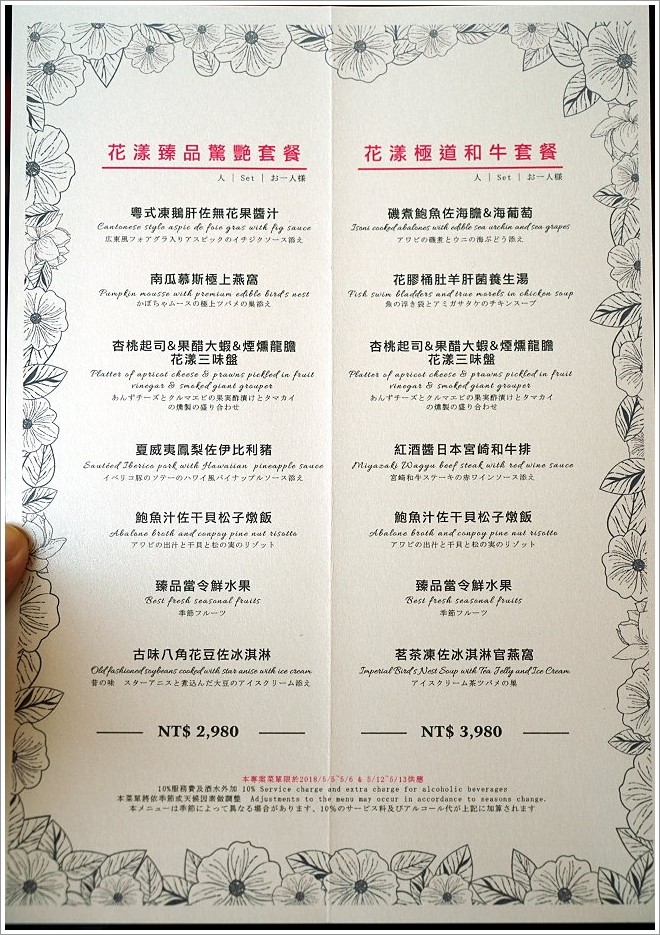 花漾臻品驚艷套餐
人 | Set | お一人様
粵式凍鵝肝佐無花果醬汁
Cantonese style aspic de foie gras with fig sauce
広東風フォアグラ入りアスピックのイチジクソース添え
南瓜慕斯極上燕窩
Pumpkin mousse with premium edible bird's nest
かぼちゃムースの極上ツバメの巣添え
杏桃起司&果醋大蝦&煙燻龍膽
花漾三味盤
Platter of apricot cheese & prawns pickled in fruit
vinegar & smoked giant grouper
あんずチーズとクルマエビの果実酢漬けとタマカイ
の燻製の盛り合わせ
夏威夷鳳梨佐伊比利豬
Sautéed Iberico pork with Hawaiian pineapple sauce
イベリコ豚のソテーのハワイ風パイナップルソース添え
鮑魚汁佐干貝松子燉飯
Abalone broth and conpoy pine nut risotto
アワビの出汁と干貝と松の実のリゾット
臻品當令鮮水果
Best fresh seasonal fruits
季節フルーツ
古味八角花豆佐冰淇淋
Old fashioned soybeans cooked with star anise with ice cream
昔の味 スターアニスと煮込んだ大豆のアイスクリーム添え
NT$ 2,980
花漾極道和牛套餐
人 | Set | お一人様
磯煮鮑魚佐海膽&海葡萄
Isoni cooked abalones with edible sea urchin and sea grapes
アワビの磯煮とウニの海ぶどう添え
花膠桶肚羊肝菌養生湯
Fish swim bladders and true morels in chicken soup
魚の浮き袋とアミガサタケのチキンスープ
杏桃起司&果醋大蝦&煙燻龍膽
花漾三味盤
Platter of apricot cheese & prawns pickled in fruit
vinegar & smoked giant grouper
あんずチーズとクルマエビの果実酢漬けとタマカイ
の燻製の盛り合わせ
紅酒醬日本宮崎和牛排
Miyazaki Wagyu beef steak with red wine sauce
宮崎和牛ステーキの赤ワインソース添え
鮑魚汁佐干貝松子燉飯
Abalone broth and conpoy pine nut risotto
アワビの出汁と干貝と松の実のリゾット
臻品當令鮮水果
Best fresh seasonal fruits
季節フルーツ
茗茶凍佐冰淇淋官燕窩
Imperial Bird's Nest Soup with Tea Jelly and Ice Cream
アイスクリーム茶ツバメの巣
NT$ 3,980
本專案菜單限於2018/5/5~5/6 & 5/12~5/13供應
10%服務費及酒水外加 10% Service charge and extra charge for alcoholic beverages
本菜單將依季節或天候因素做調整 Adjustments to the menu may occur in accordance to seasons change.
本メニューは季節によって異なる場合があります、10%のサービス料及びアルコール代が上記に加算されます